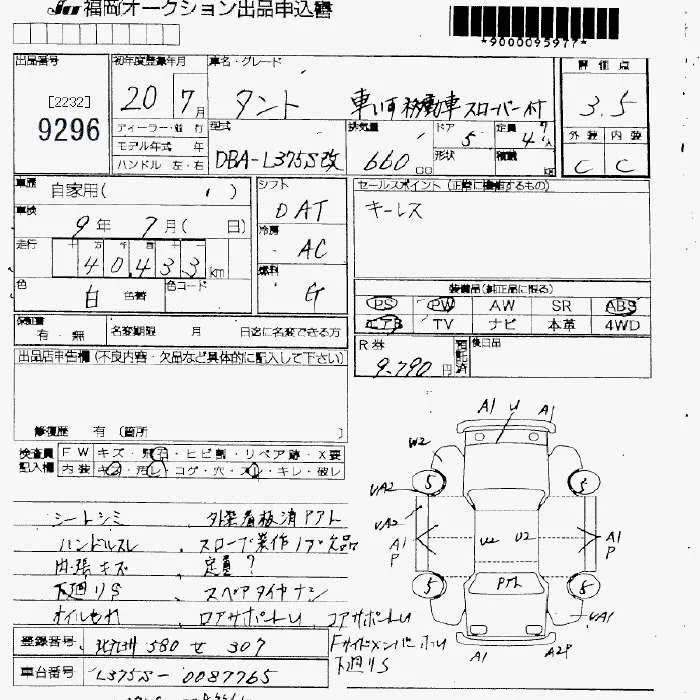 福岡オークション出品申込書
*9000095977*
出品番号
[2232]
9296
初年度登録年月
20 7月
ディーラー・並行
モデル年式 年
ハンドル 左・右
車名・グレード
タント 車いす移動車 スローパー付
型式
DBA-L375S改
排気量
660 cc
ドア
5
形状
定員
4 7人
積載
評価点
3.5
外装 内装
C C
車歴
自家用( )
車検
9年 7月( 日)
走行
40,433 km
色
白 色替
色コード
シフト
DAT
冷房
AC
燃料
G
セールスポイント(正常に機能するもの)
キーレス
装備品(純正品に限る)
PS PW AW SR ABS
エアB TV ナビ 本革 4WD
R券
9,790円
預託済
後日品
保証書
有・無
名変期限 月 日迄に名変できる方
出品店申告欄(不良内容・欠品など具体的に記入して下さい)
修復歴 有 (箇所 )
検査員記入欄
FW キズ・飛石・ヒビ割・リペア跡・X要
内装 キズ・汚レ・コゲ・穴・スレ・キレ・破レ
シートシミ 外装看板消アアト
ハンドルスレ スロープ製作
内張キズ 定員?
下廻りS スペアタイヤナシ
ロアサポートU コアサポートU
Fサイドメンバー
下廻りS
A1 U A1
W2
UA2
UA2
A1
P
U2 U2
A1
P
5 5
5 8
UA1
A1 A2P
登録番号
580 せ 307
車台番号
L375S-0087765